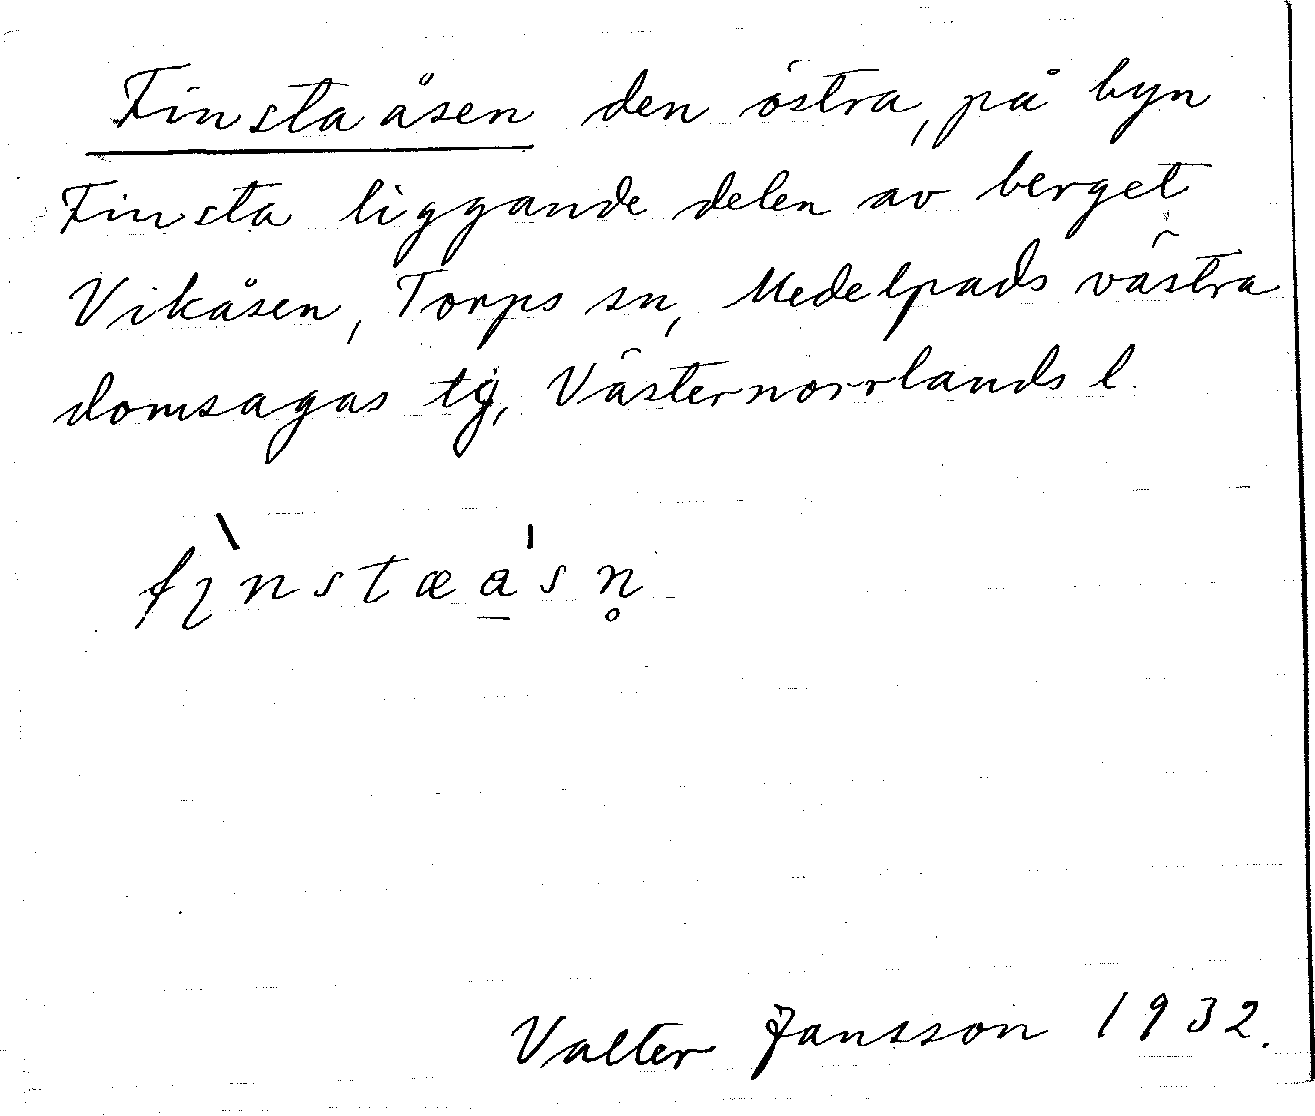 Finstaåsen den östra, på byn
Finsta liggande delen av berget
Vikåsen, Torps sn, Medelpads västra
domsagas tg, Västernorrlands l.
fı̀nstæa̱'sn̥
Valter Jansson 1932.